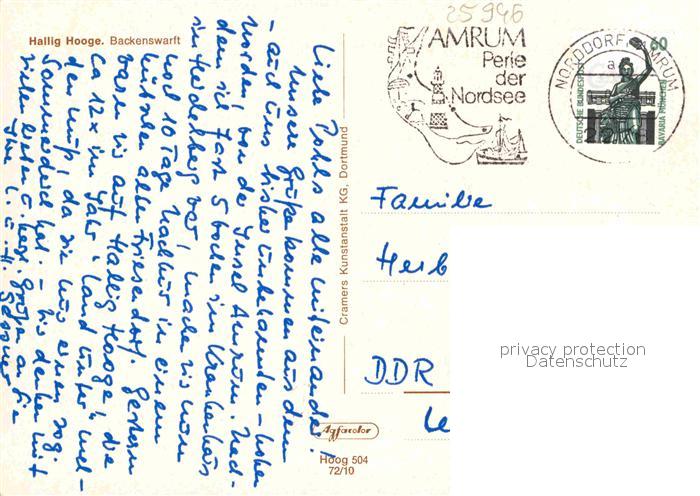 25946
Hallig Hooge. Backenswarft
AMRUM
Perle
der
Nordsee
NORDDORF AMRUM
a
60
DEUTSCHE BUNDESPOST
BAVARIA MÜNCHEN
Liebe Pohls alle miteinander!
Unsere Grüße kommen aus dem
- auch uns bisher unbekannten - hohen
Norden, von der Insel Amrum. Nach-
dem ich fast 5 Wochen im Krankenhaus
in Heidelberg war, machen wir nun
noch 10 Tage Nachkur in einem
alten Friesendorf. Gestern
waren wir auf Hallig Hooge, die
ca 12 x im Jahr "Land unter" mel-
den muß, da sie nur einen sog.
Sommerdeich hat. - Wir denken mit
vielen lieben u. herzl. Grüßen an Sie
Ihre
Cramers Kunstanstalt KG. Dortmund
Familie
Herb
DDR
Le
privacy protection
Datenschutz
Agfacolor
Hoog 504
72/10